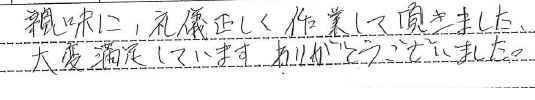 親味に、礼儀正しく作業して頂きました、
大変満足しています ありがとうございました。